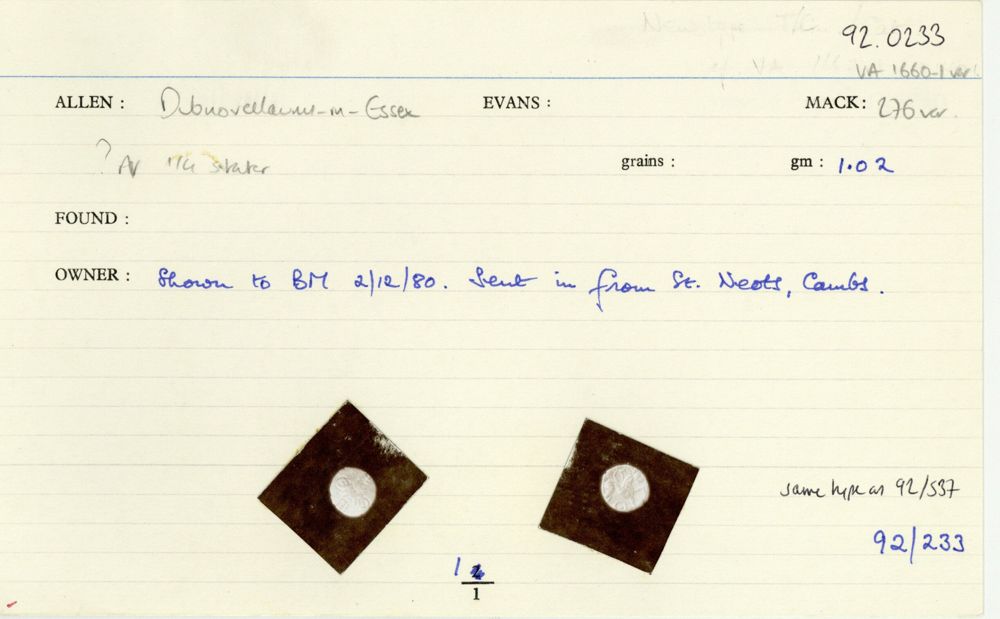 92.0233
VA 1660-1 var.
ALLEN : Dubnovellaunus-in-Essex EVANS : MACK: 276 var.
? AV 1/4 stater grains : gm : 1.02
FOUND :
OWNER : Shown to BM 2/12/80. Sent in from St. Neots, Cambs.
same type as 92/537
92/233
1
1